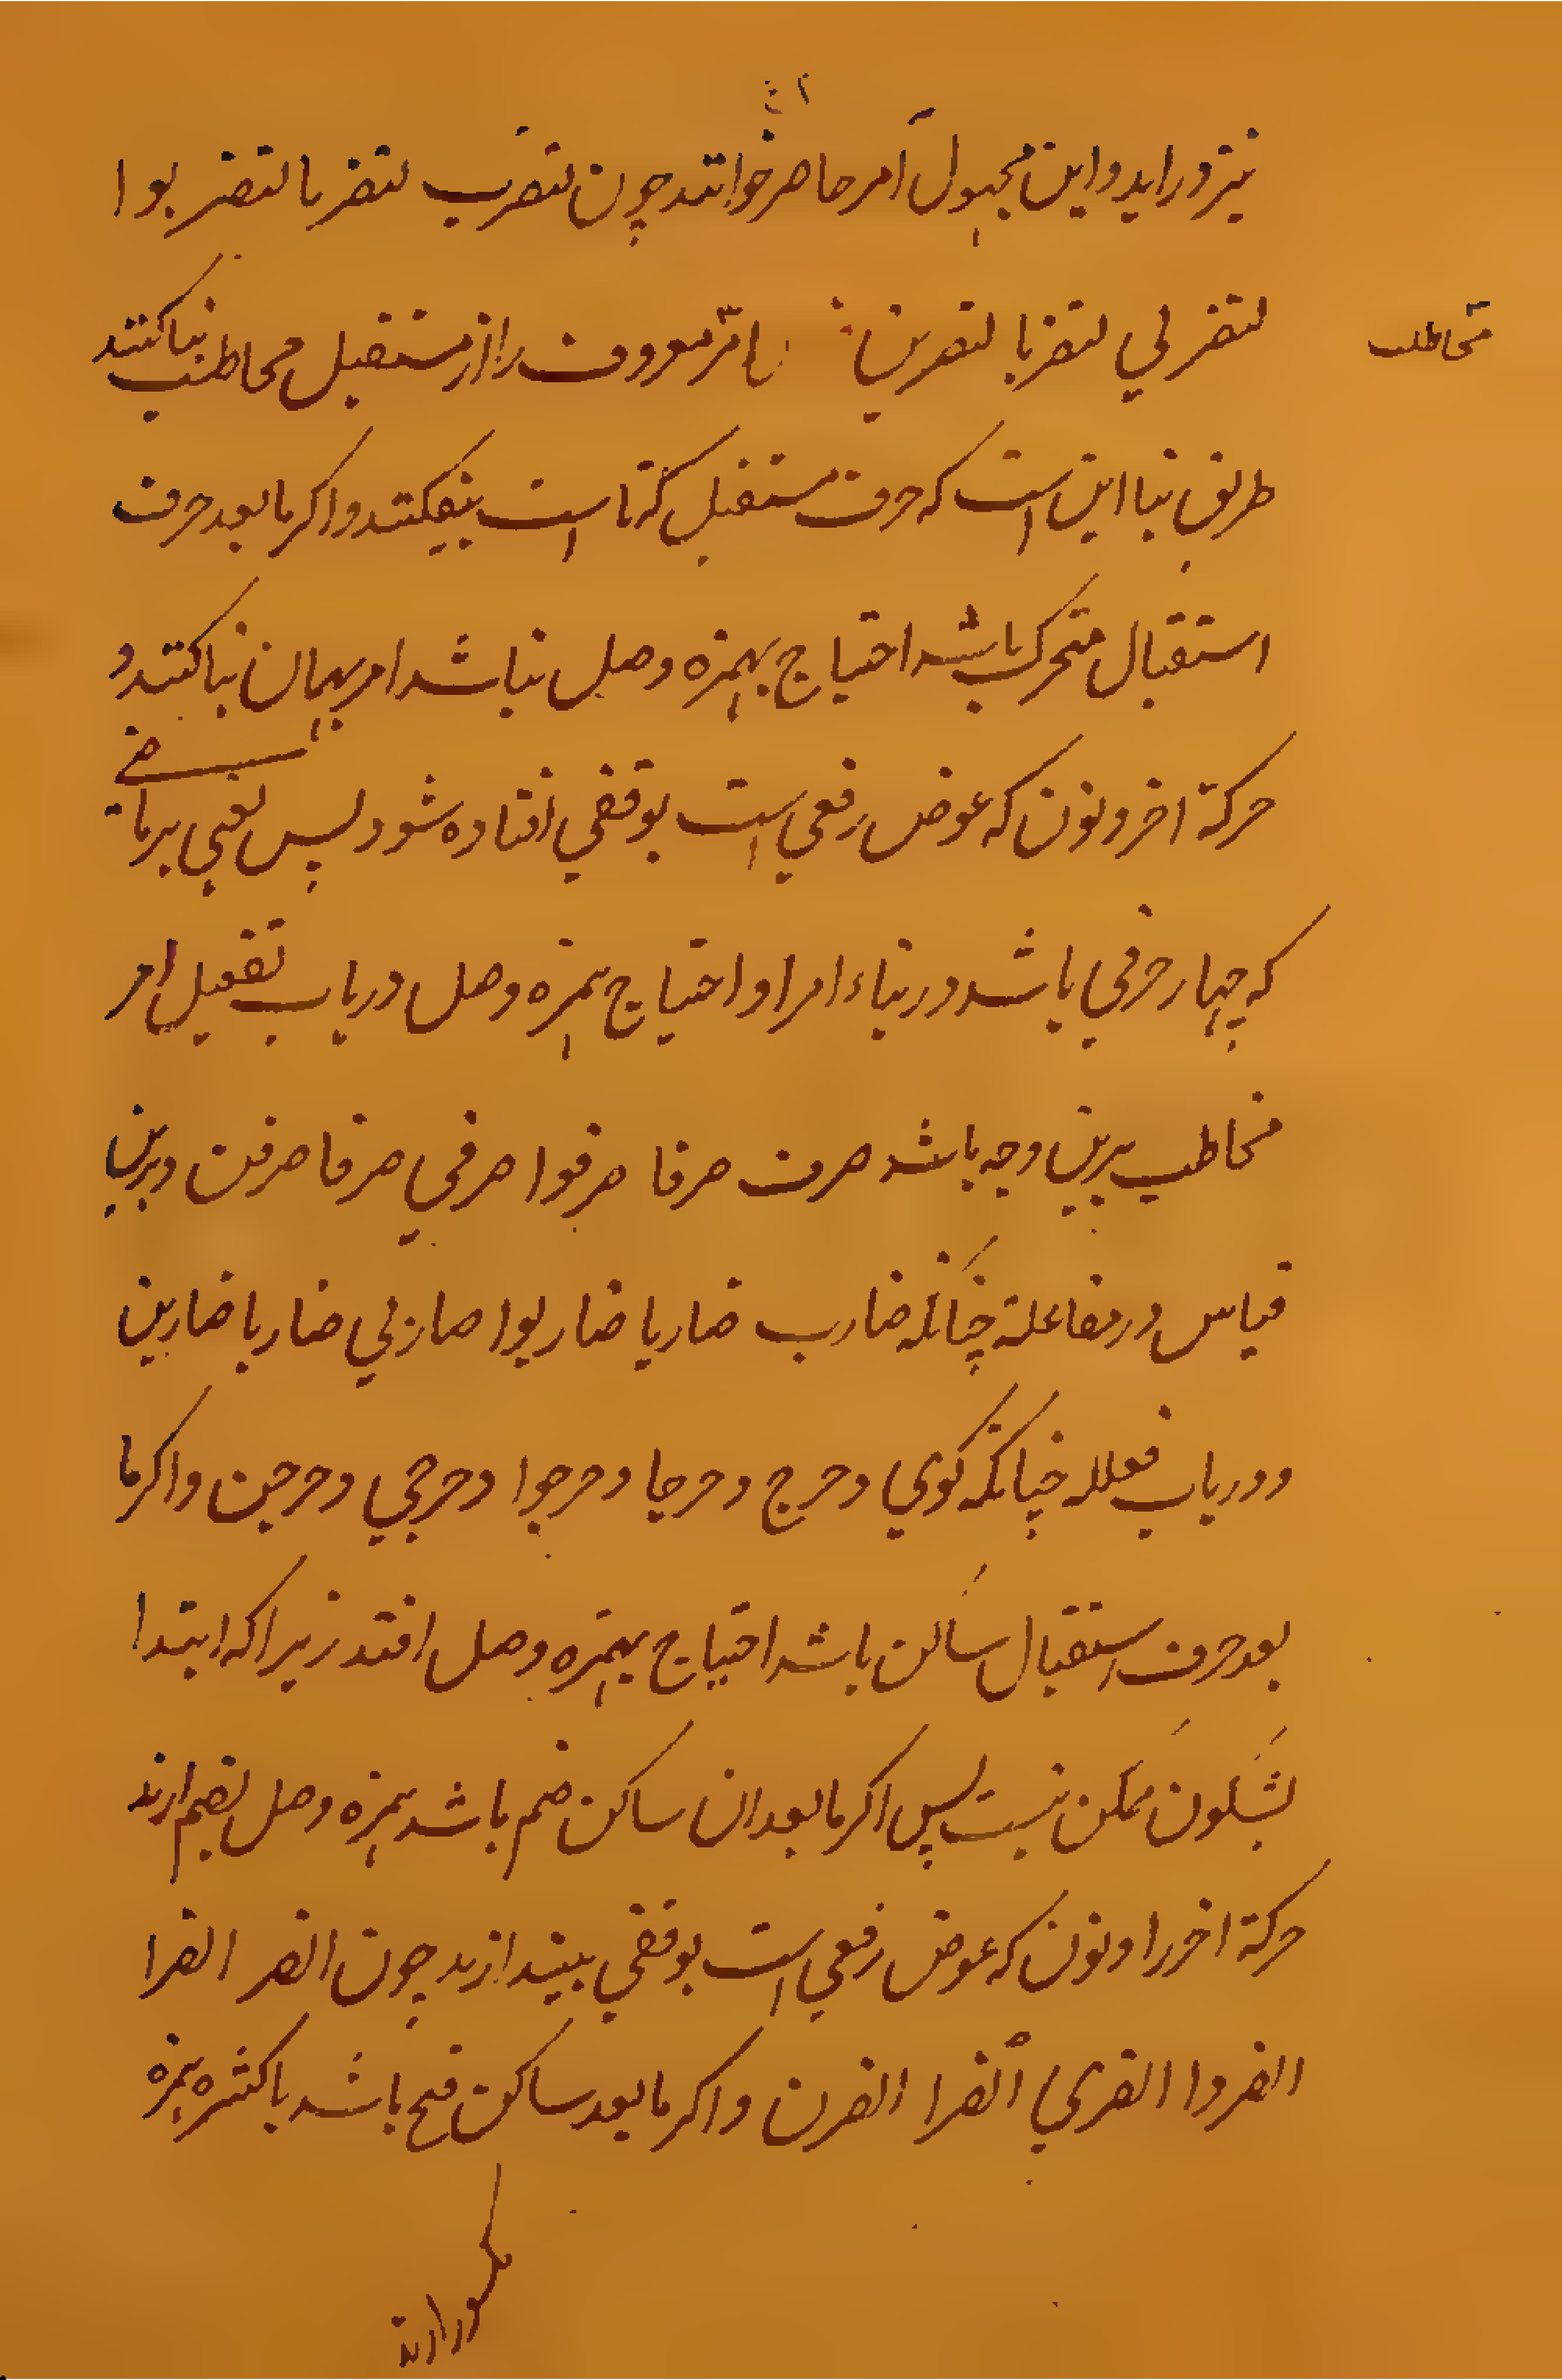 نیز در اید و این مجهول امر حاضر خوانند چون لتضرب لتضربا لتضربوا
لتضربي لتضربا لتضربن امر معروف را از مستقبل مخاطب بنا کنند
مخاطب
طریق بنا این است که حرف مستقبل که تا است بیفکنند و اکر ما بعد حرف
استقبال متحرک باشد احتیاج بهمزه وصل نباشد امر بهمان بنا کنند و
حرکة اخر و نون که عوض رفعي است بوقفي افتاده شود پس یعني بر ماضے
که چهار حرفي باشد در بناء امر او احتیاج همزه وصل در باب تفعیل امر
مخاطب برین وجه باشد صرف صرفا صرفوا صرفي صرفا صرفن و برین
قیاس در مفاعلة چنانکه ضارب ضاربا ضاربوا ضاربي ضاربا ضاربن
و در باب فعلله چنانکه کوي دحرج دحرجا دحرجوا دحرجي دحرجن و اکر ما
بعد حرف استقبال ساکن باشد احتیاج بهمزه وصل افتد زیرا که ابتدا
بسکون ممکن نیست پس اکر ما بعد ان ساکن ضم باشد همزه وصل بضم ارند
حرکة اخر را و نون که عوض رفعي است بوقفي بیندازند چون انصر انصرا
انصروا انصري انصرا انصرن و اکر ما بعد ساکن فتح باشد یا کسره همزه